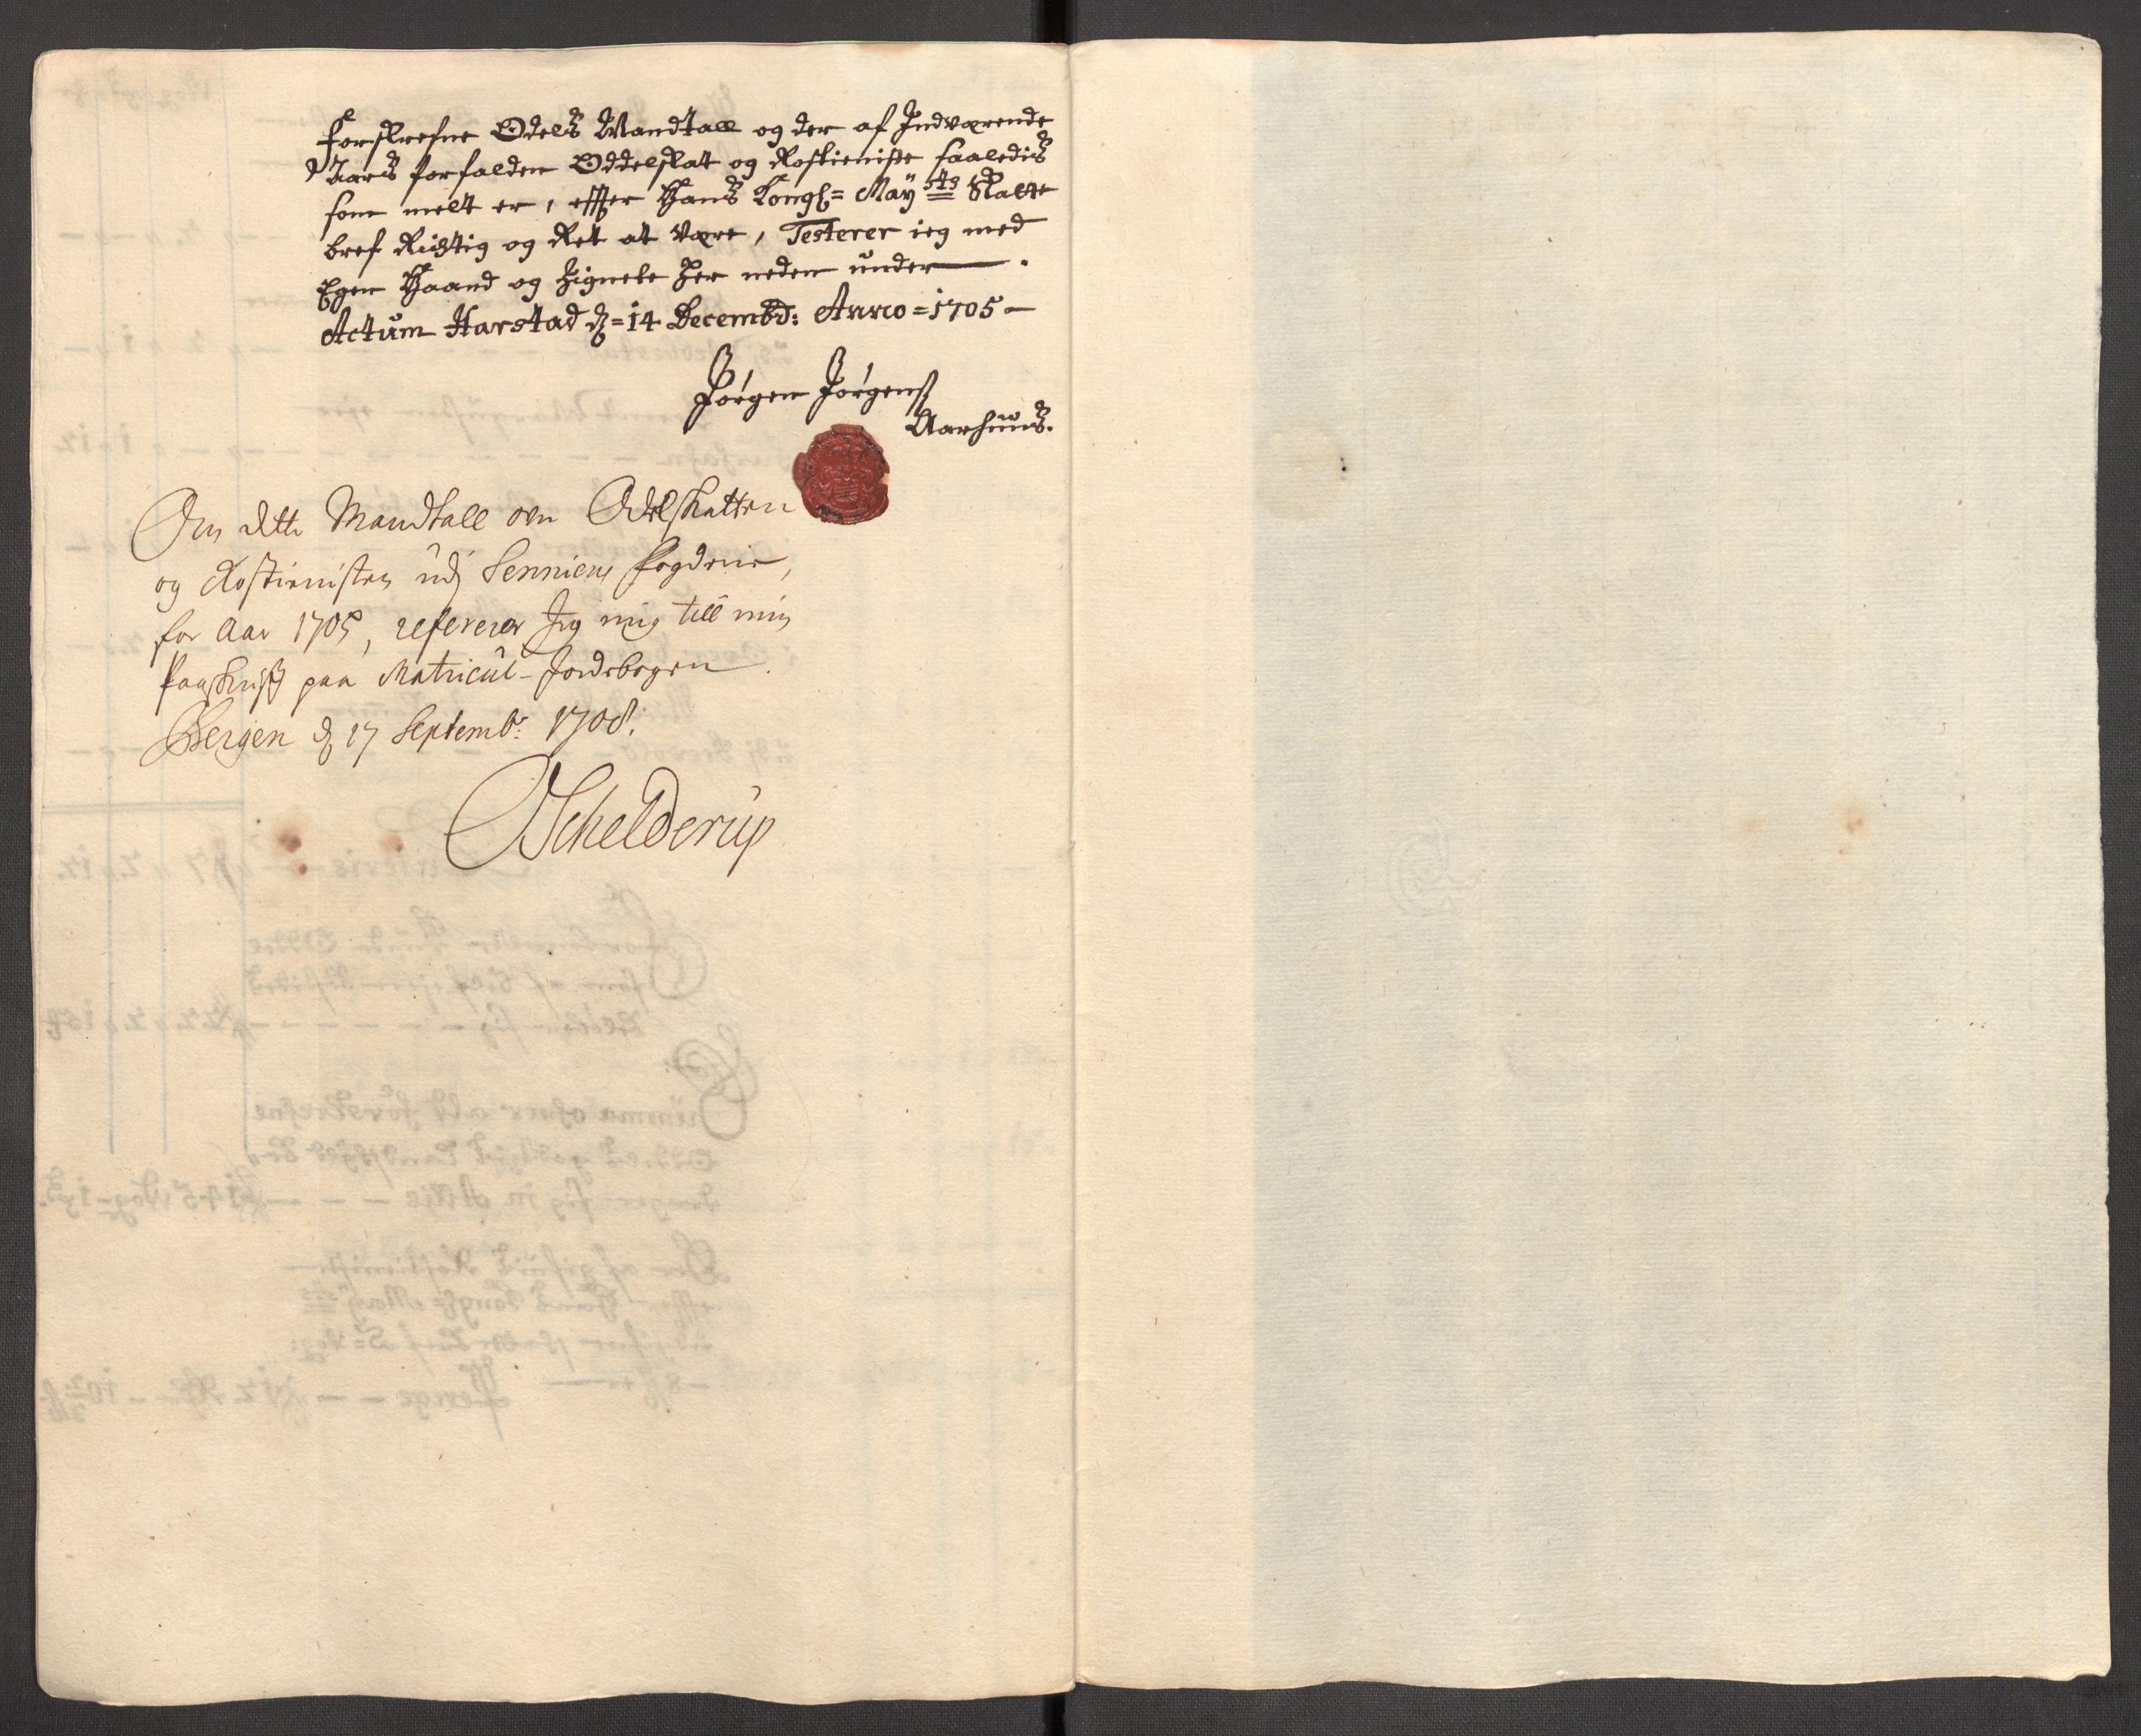 Forskrefne Odels Mandtall og der af Indværende
Aars forfalden Oddelskat og Rostieniste saaledis
som melt er, effter Hans Kongl= May^sts Skatte
bref Rigtig og Ret at være, Testerer ieg med
Egen Haand og Zignete her neden under.
Actum Harstad d=14 Decembr: Anno=1705
Jørgen Jørgens
Aarhuus.
Om dette Mandtall offver Odelskatten
og Rostienisten udj Senniens fogderie,
for Aar 1705, referer Jeg mig till min
Paaskrift paa Matricul-Jordebogen.
Bergen d 17 Septembr: 1708.
Schelderup